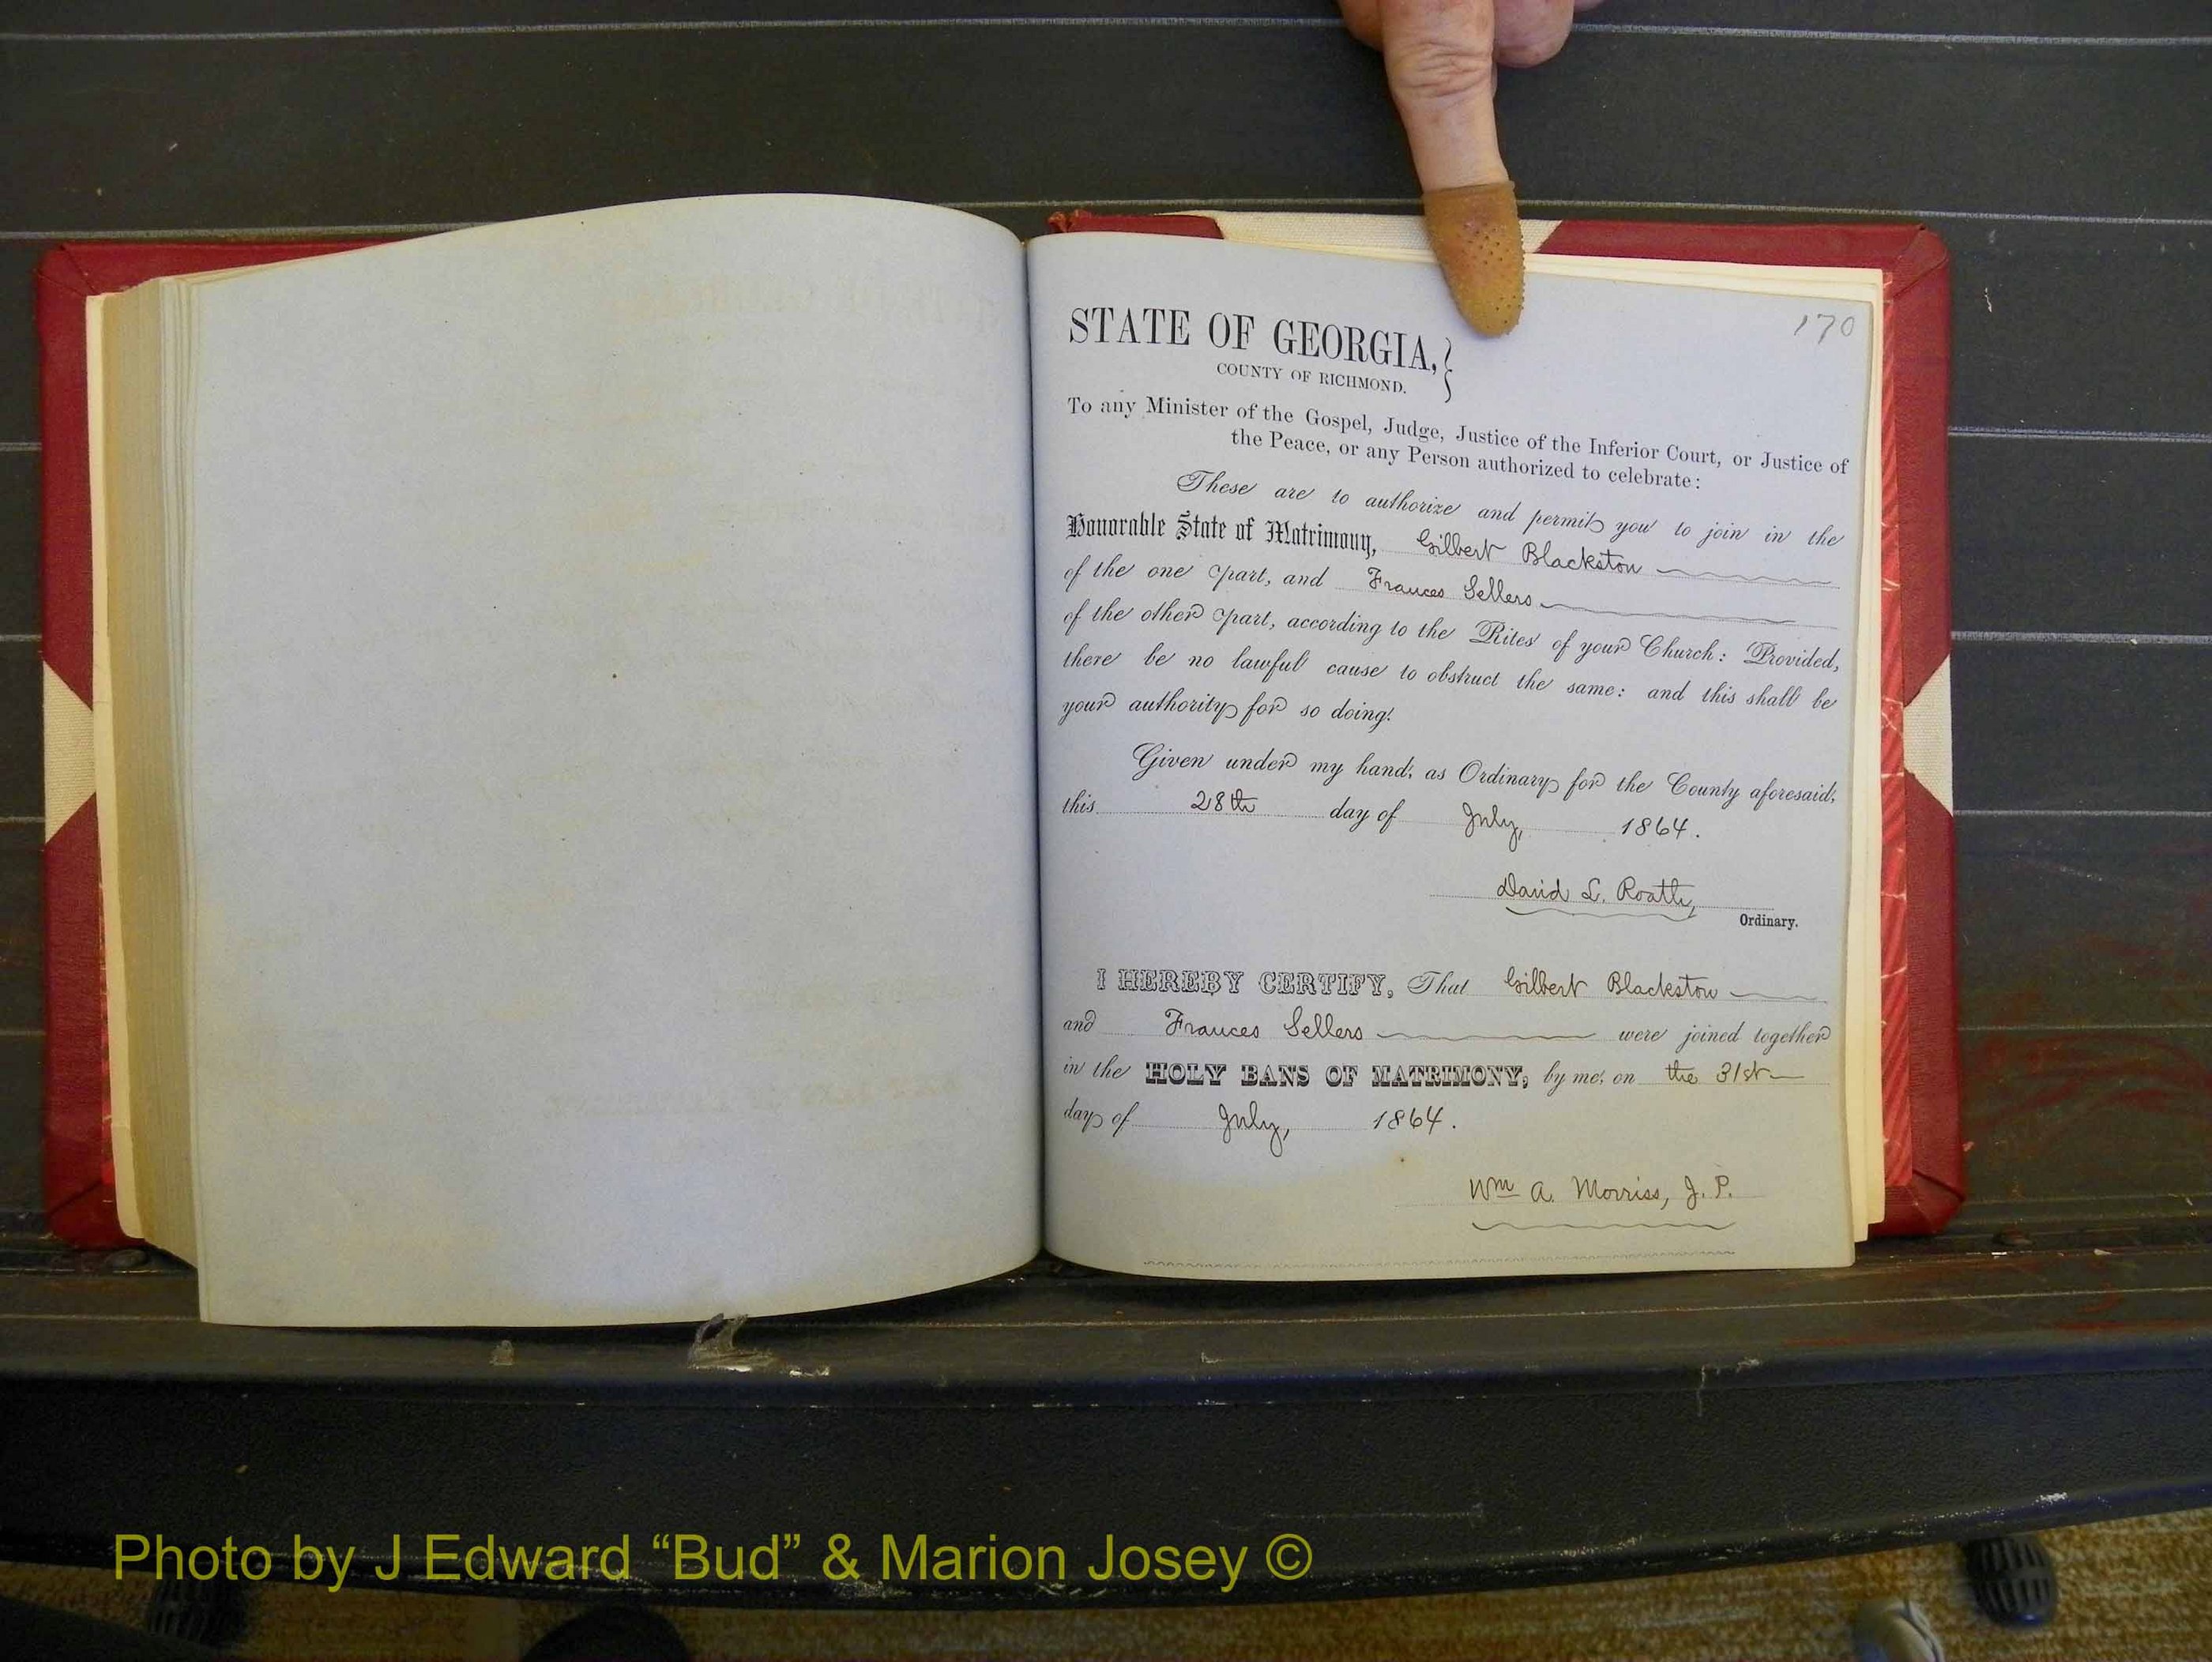 170
STATE OF GEORGIA,
COUNTY OF RICHMOND.
To any Minister of the Gospel, Judge, Justice of the Inferior Court, or Justice of
the Peace, or any Person authorized to celebrate:
These are to authorize and permit you to join in the
Honorable State of Matrimony, Gilbert Blackston
of the one part, and Frances Sellers
of the other part, according to the Rites of your Church: Provided,
there be no lawful cause to obstruct the same: and this shall be
your authority for so doing.
Given under my hand, as Ordinary for the County aforesaid,
this 28th day of July, 1864.
David L. Roath,
Ordinary.
I HEREBY CERTIFY, That Gilbert Blackston
and Frances Sellers were joined together
in the HOLY BANS OF MATRIMONY, by me, on the 31st
day of July, 1864.
Wm A. Morriss, J. P.
Photo by J Edward “Bud” & Marion Josey ©